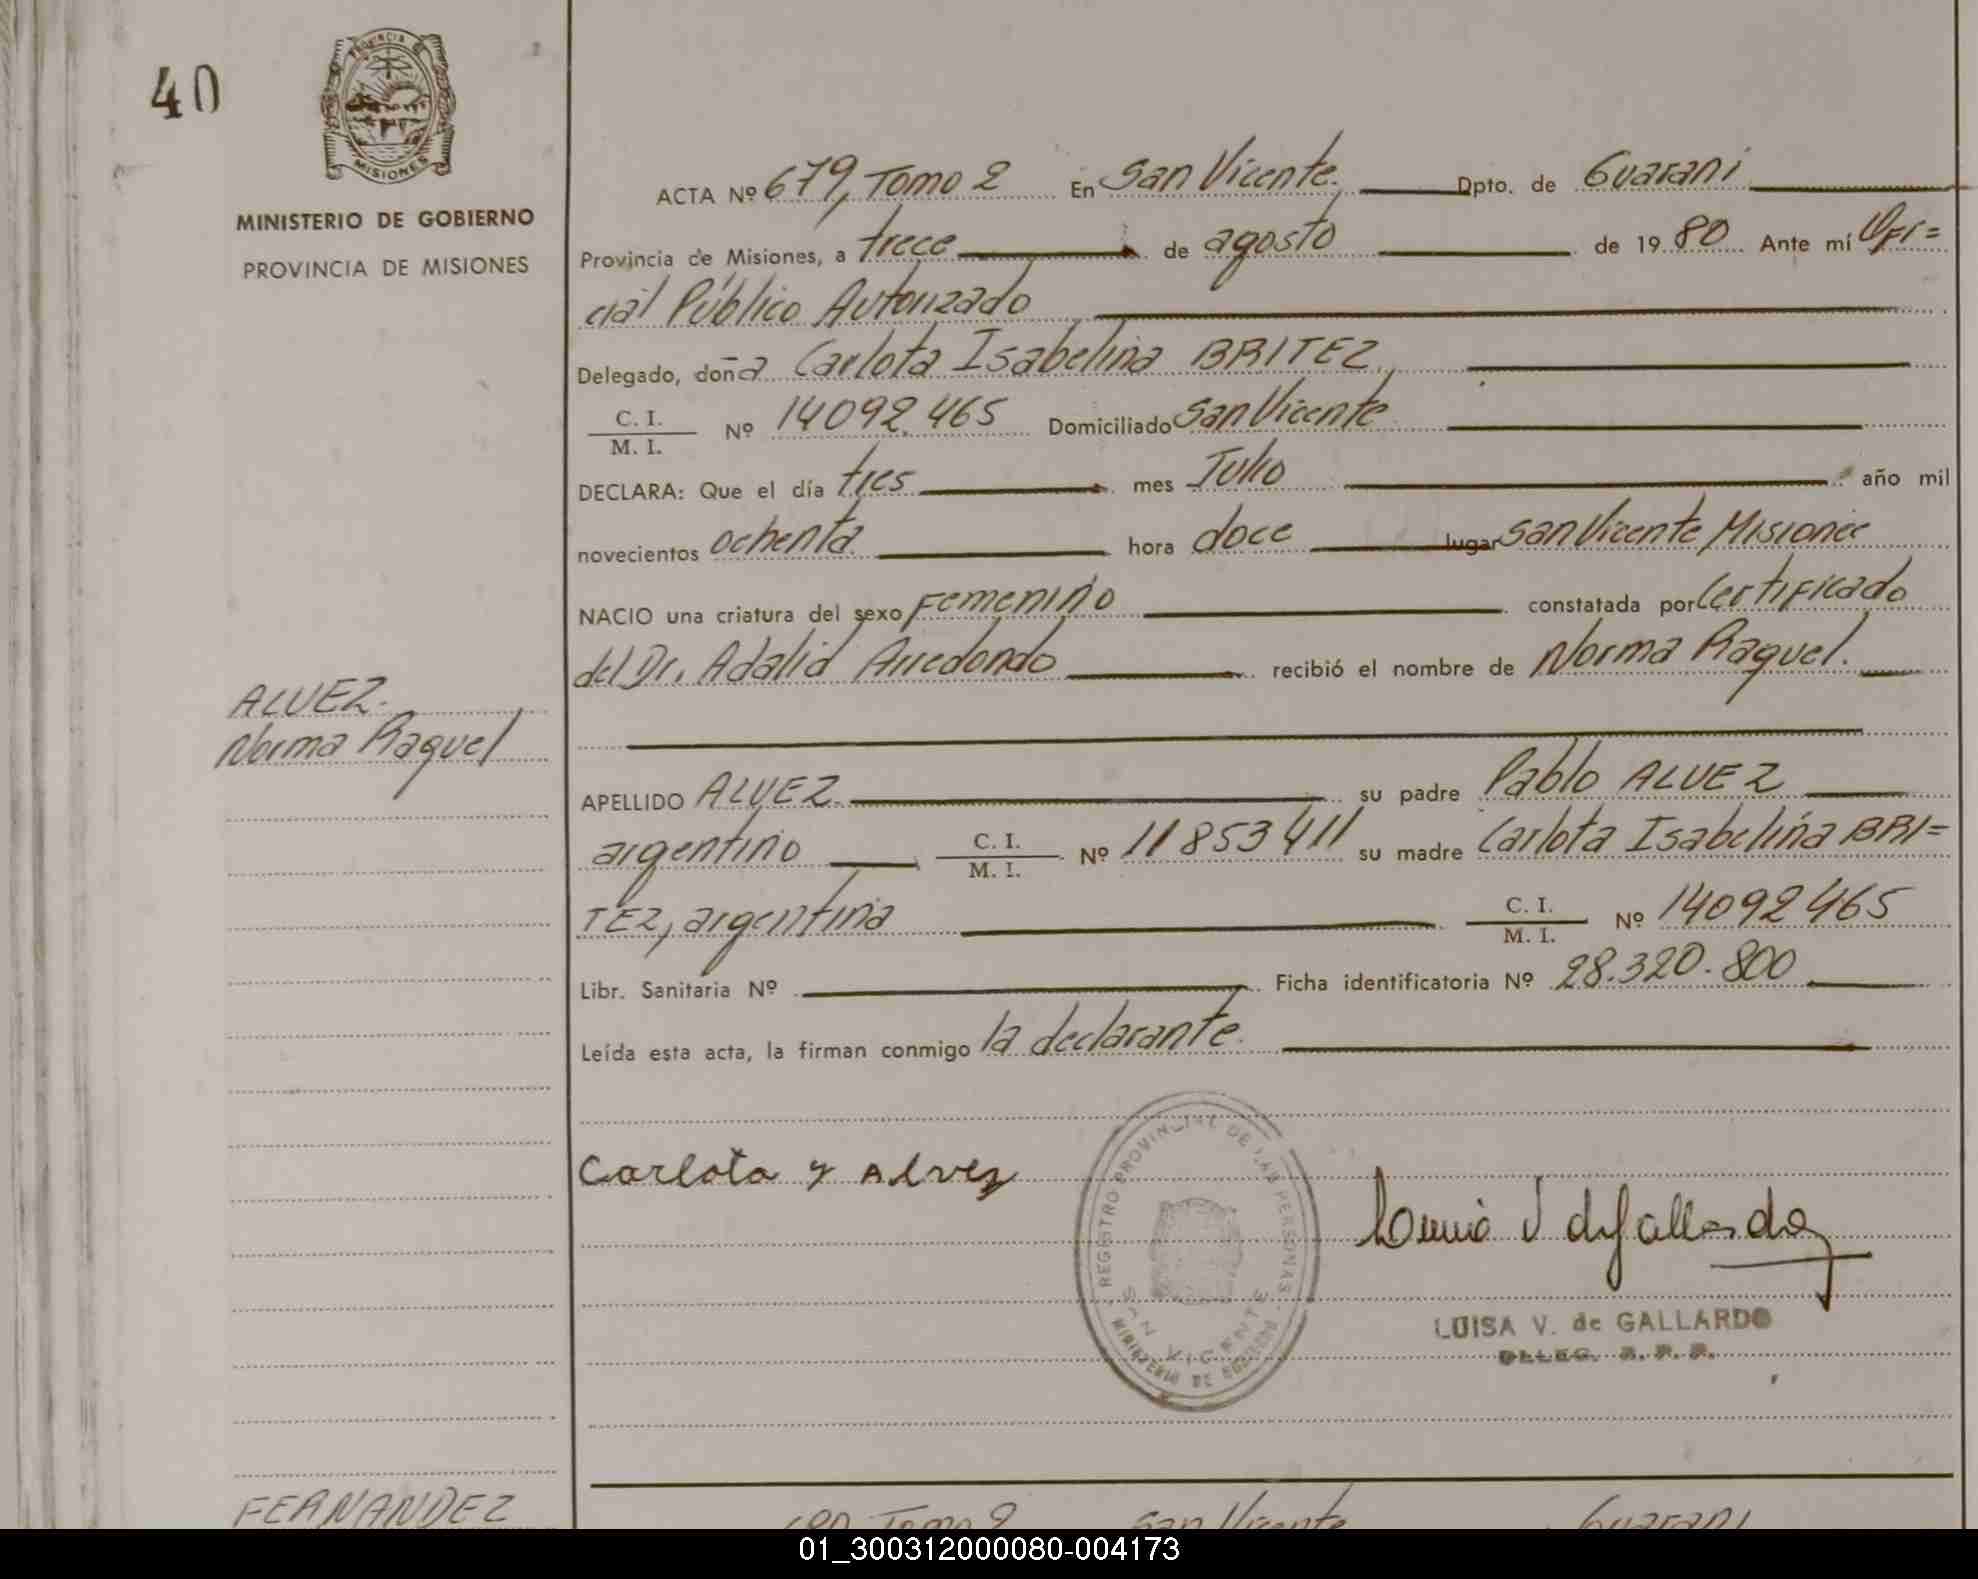 40
PROVINCIA DE
MISIONES
MINISTERIO DE GOBIERNO
PROVINCIA DE MISIONES
ACTA Nº 679, Tomo 2 En San Vicente. Dpto. de Guarani
Provincia de Misiones, a trece de agosto de 1980 Ante mí Ofi=
cial Público Autorizado
Delegado, doña Carlota Isabelina BRITEZ,
C. I.
M. I. Nº 14092.465 Domiciliado San Vicente
DECLARA: Que el día tres mes Julio año mil
novecientos ochenta hora doce lugar San Vicente Misiones
NACIO una criatura del sexo Femenino constatada por Certificado
del Dr. Adalid Arredondo recibió el nombre de Norma Raquel.
ALVEZ.
Norma Raquel
APELLIDO ALVEZ. su padre Pablo ALVEZ
argentino C. I.
M. I. Nº 11853411 su madre Carlota Isabelina BRI=
TEZ, argentina C. I.
M. I. Nº 14092465
Libr. Sanitaria Nº Ficha identificatoria Nº 28.320.800
Leída esta acta, la firman conmigo la declarante.
Carlota Y Alvez
REGISTRO PROVINCIAL DE LAS PERSONAS
SAN VICENTE
MINISTERIO DE GOBIERNO
LUISA V. de GALLARDO
DELEG. R. P. P.
FERNANDEZ
680 Tomo 2 San Vicente Guarani
01_300312000080-004173